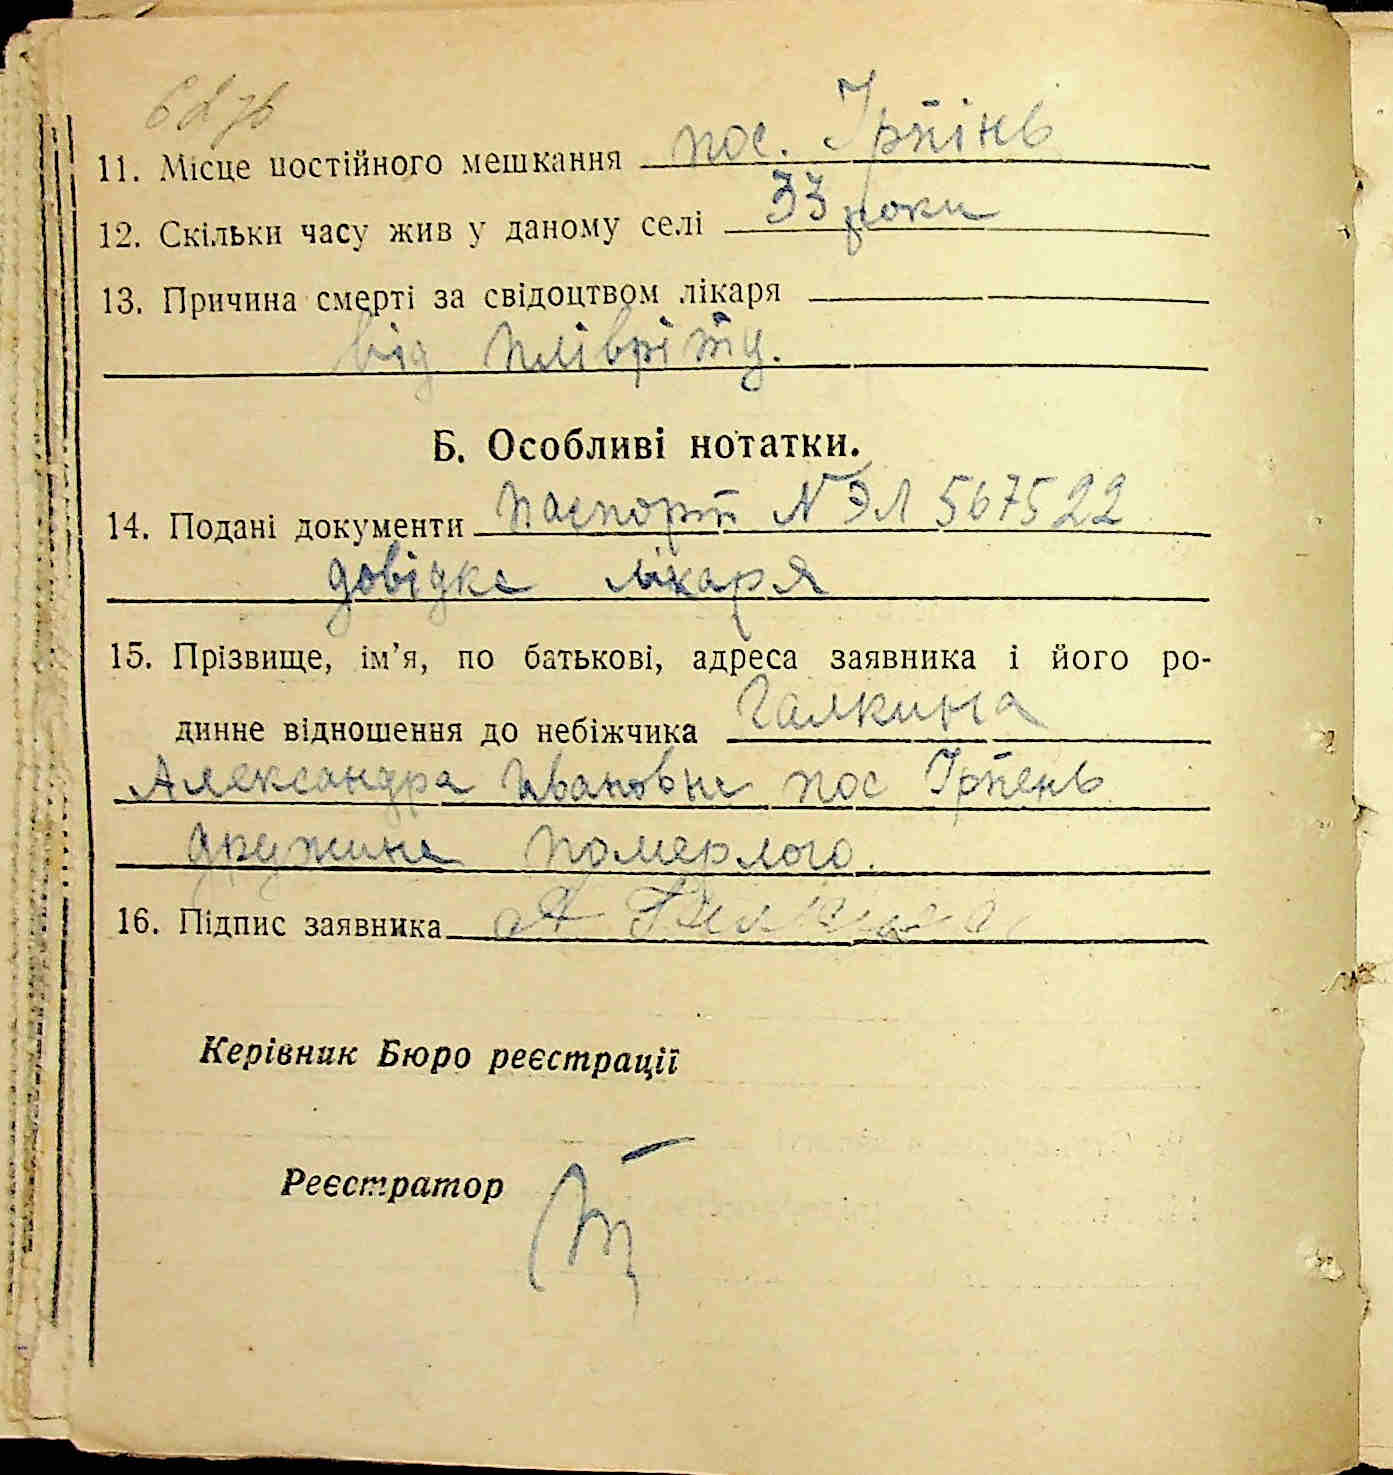 11. Місце постійного мешкання пос. Ірпінь
12. Скільки часу жив у даному селі 33 роки
13. Причина смерті за свідоцтвом лікаря
від плівріту.
Б. Особливі нотатки.
14. Подані документи паспорт N ЭЛ 567522
довідка лікаря
15. Прізвище, ім’я, по батькові, адреса заявника і його ро-
динне відношення до небіжчика Галкина
Александра Ивановна пос Ірпень
дружина померлого.
16. Підпис заявника А Галкина
Керівник Бюро реєстрації
Реєстратор